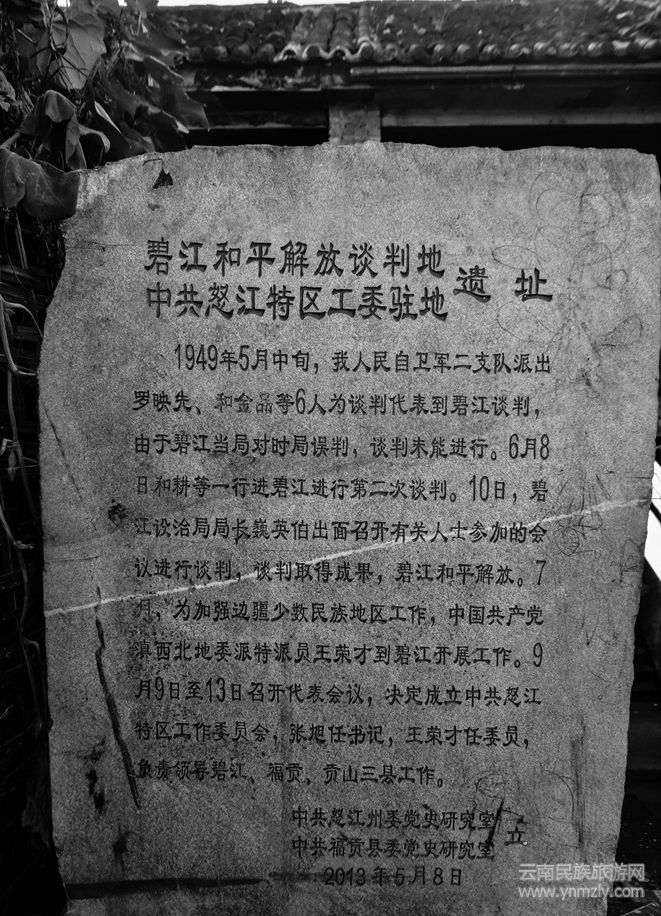 碧江和平解放谈判地
中共怒江特区工委驻地
遗址
1949年5月中旬，我人民自卫军二支队派出
罗映先、和金品等6人为谈判代表到碧江谈判，
由于碧江当局对时局误判，谈判未能进行。6月8
日和耕等一行进碧江进行第二次谈判。10日，碧
江设治局局长巍英伯出面召开有关人士参加的会
议进行谈判，谈判取得成果，碧江和平解放。7
月，为加强边疆少数民族地区工作，中国共产党
滇西北地委派特派员王荣才到碧江开展工作。9
月9日至13日召开代表会议，决定成立中共怒江
特区工作委员会，张旭任书记，王荣才任委员，
负责领导碧江、福贡、贡山三县工作。
中共怒江州委党史研究室
中共福贡县委党史研究室
立
2013年5月8日
云南民族旅游网
www.ynmzly.com